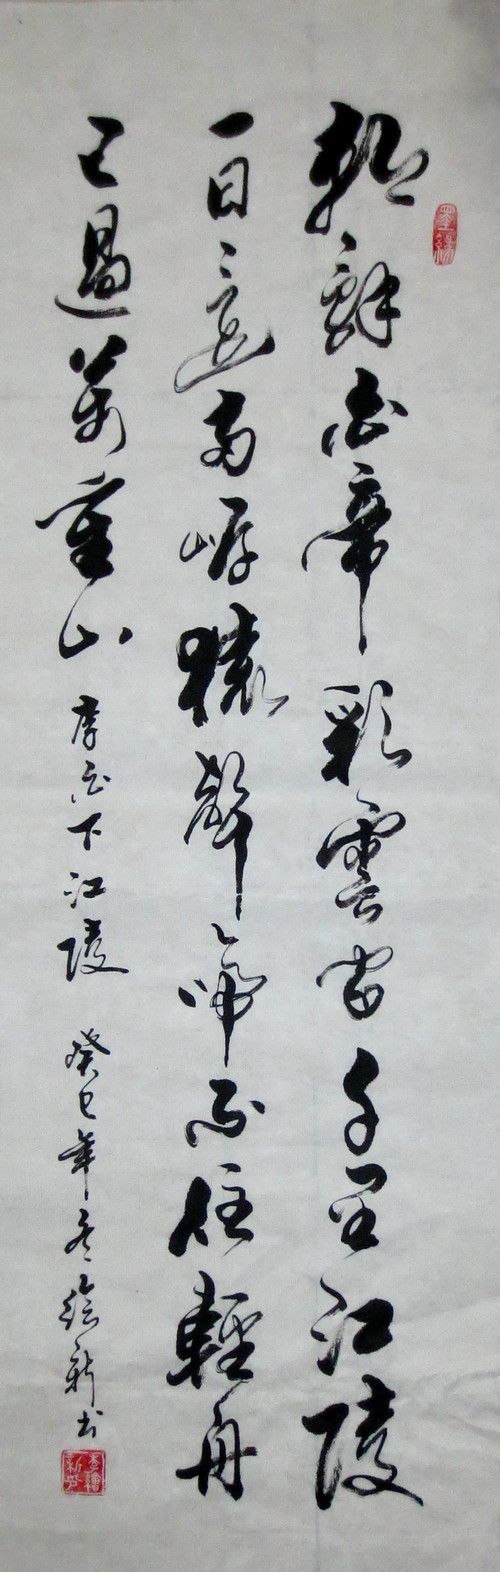 朝辭白帝彩雲間千里江陵
一日還兩岸猿聲啼不住輕舟
已過萬重山 李白下江陵 癸巳年冬繪新書
墨緣
李繪新印